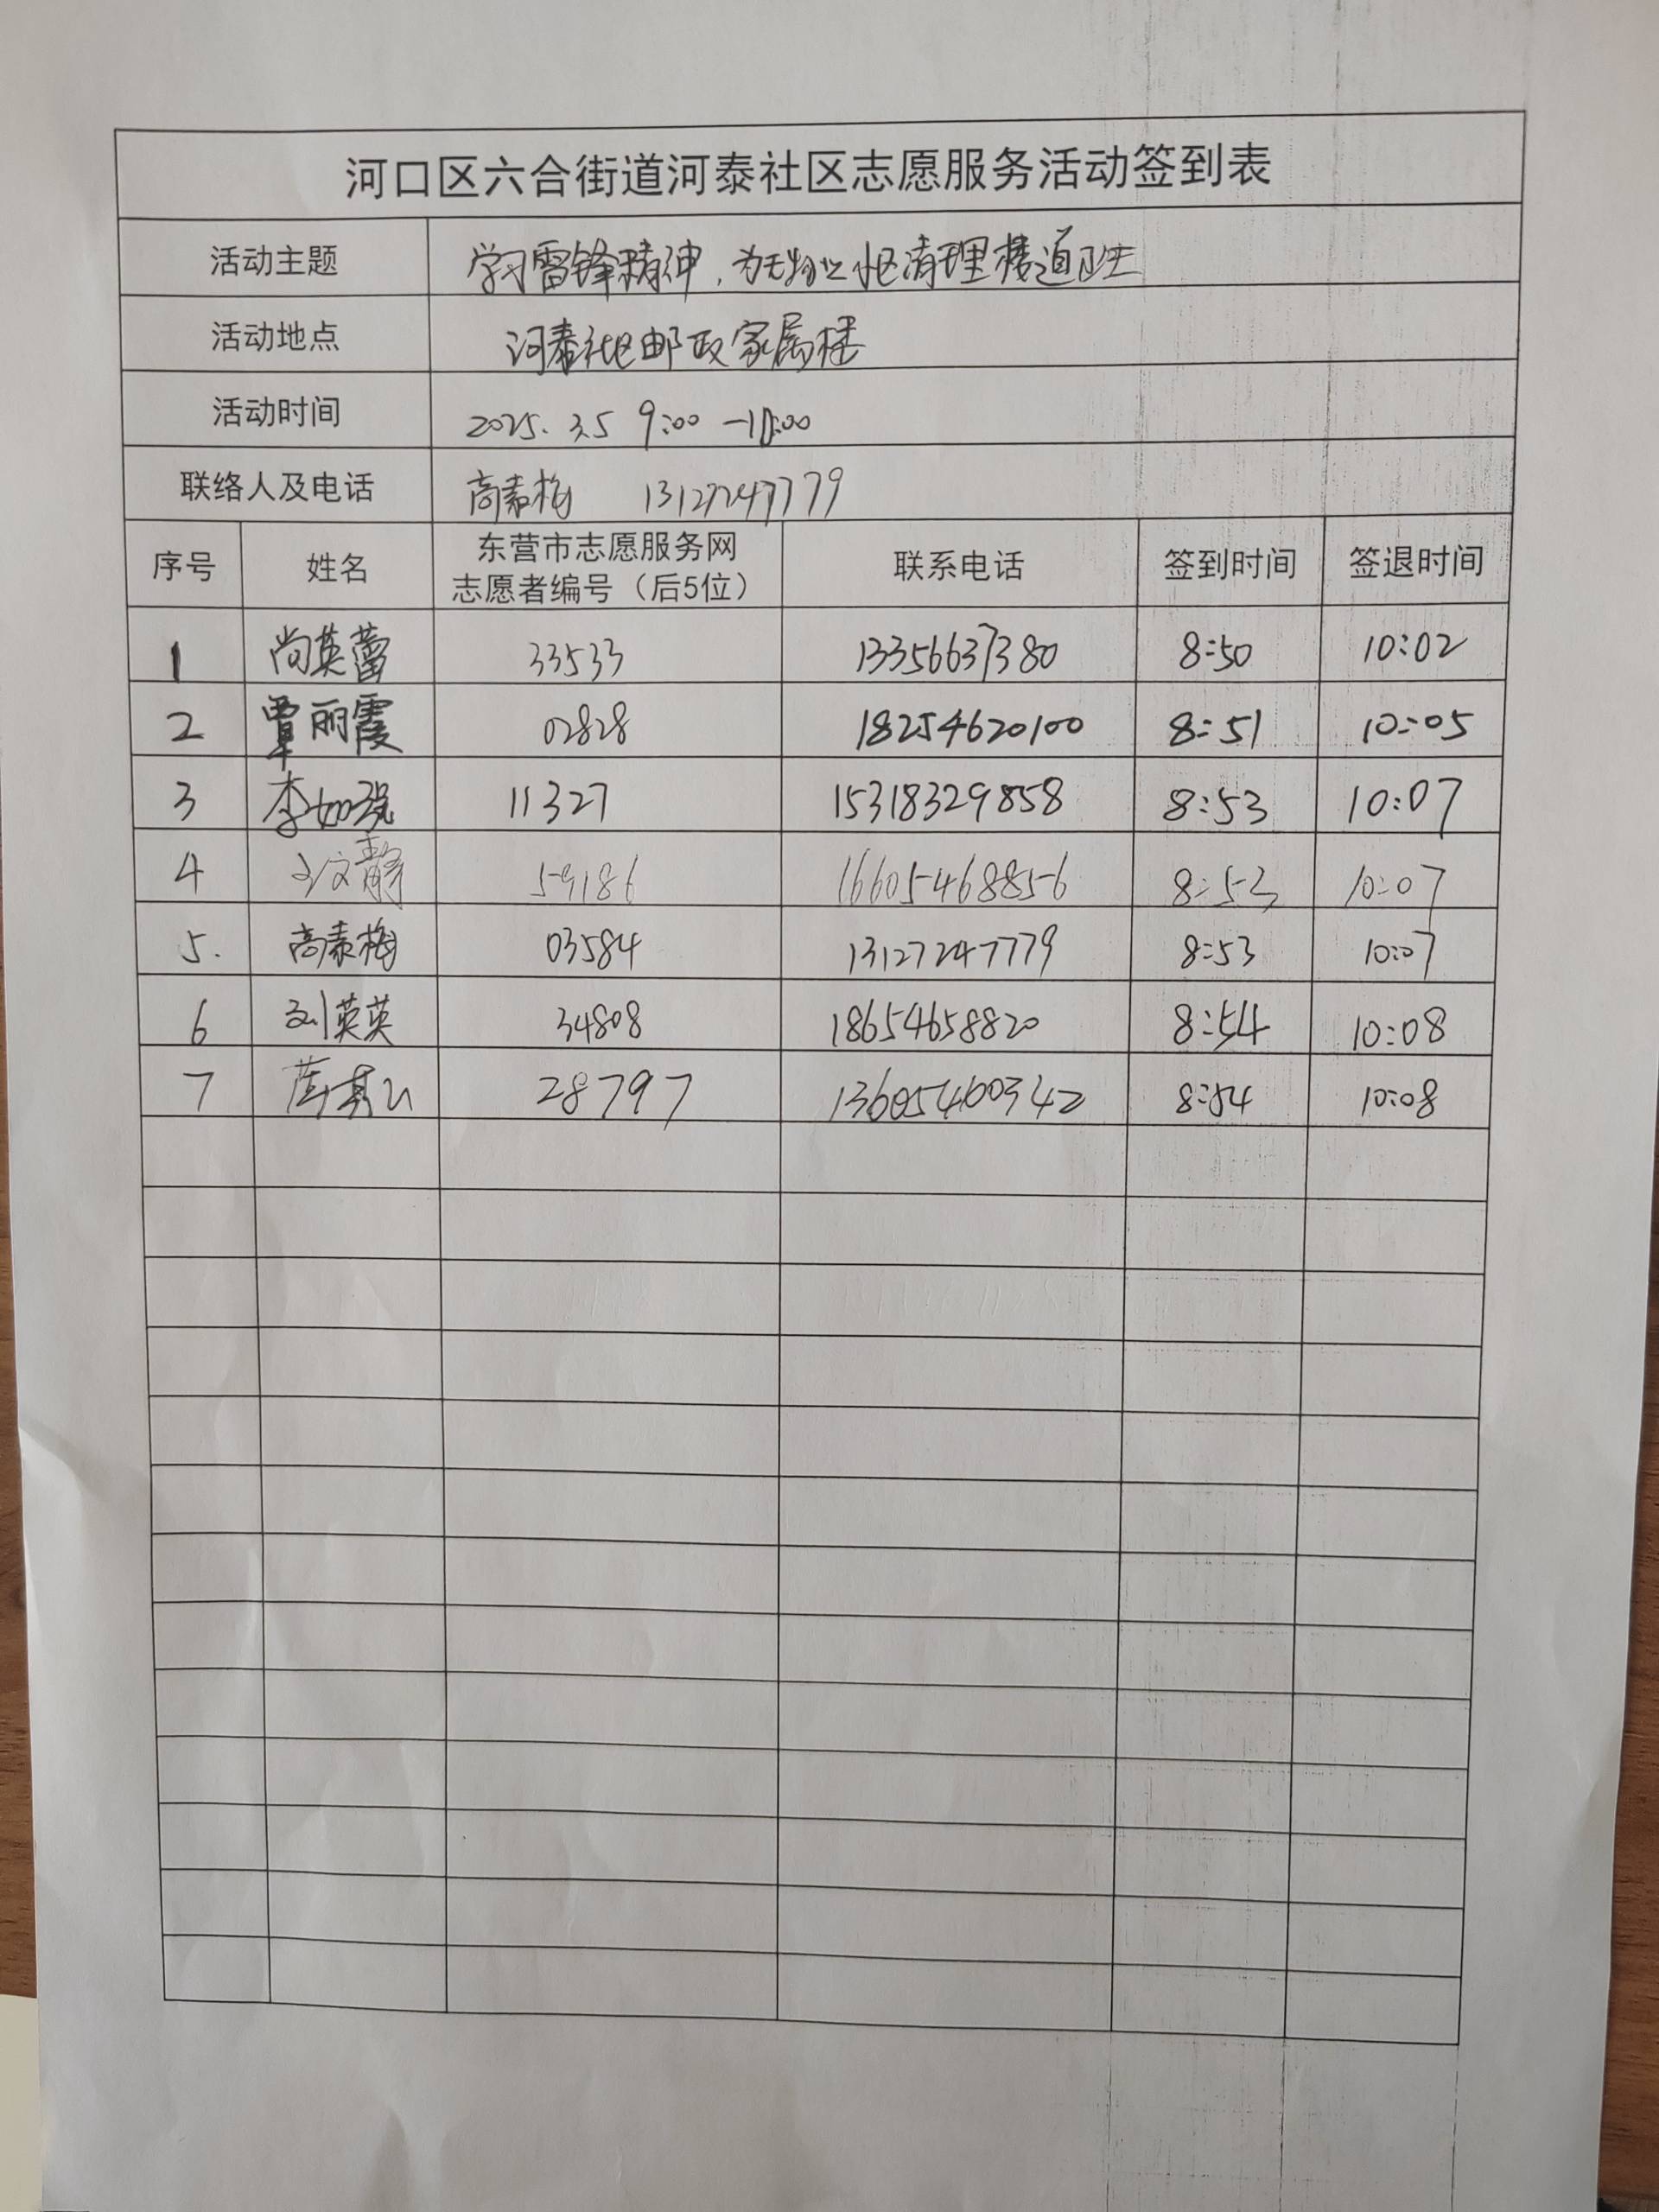 河口区六合街道河泰社区志愿服务活动签到表
活动主题 学习雷锋精神，为无物业小区清理楼道卫生
活动地点 河泰社区邮政家属楼
活动时间 2025.3.5 9:00-10:00
联络人及电话 高素梅 13127247779
序号 姓名 东营市志愿服务网 联系电话 签到时间 签退时间
志愿者编号（后5位）
1 尚英蕾 33533 13356637380 8:50 10:02
2 覃丽霞 02828 18254620100 8:51 10:05
3 李如强 11327 15318329858 8:53 10:07
4 文静 59186 16605468856 8:53 10:07
5. 高素梅 03584 13127247779 8:53 10:07
6 刘英英 34808 18654658820 8:54 10:08
7 28797 13605460342 8:54 10:08